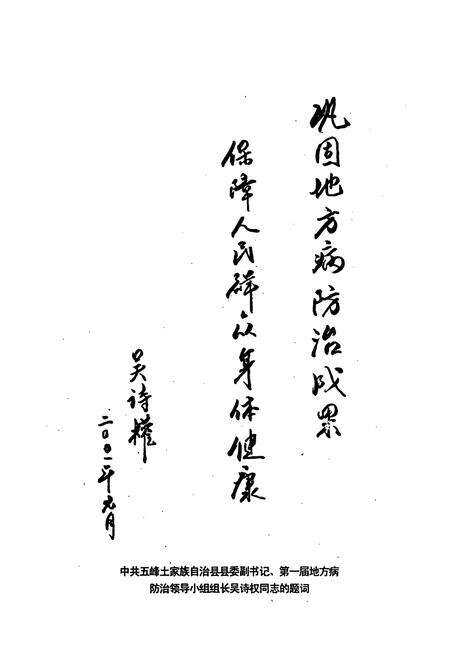 巩固地方病防治成果
保障人民群众身体健康
吴诗權
二〇〇一年元月
中共五峰土家族自治县县委副书记、第一届地方病
防治领导小组组长吴诗权同志的题词